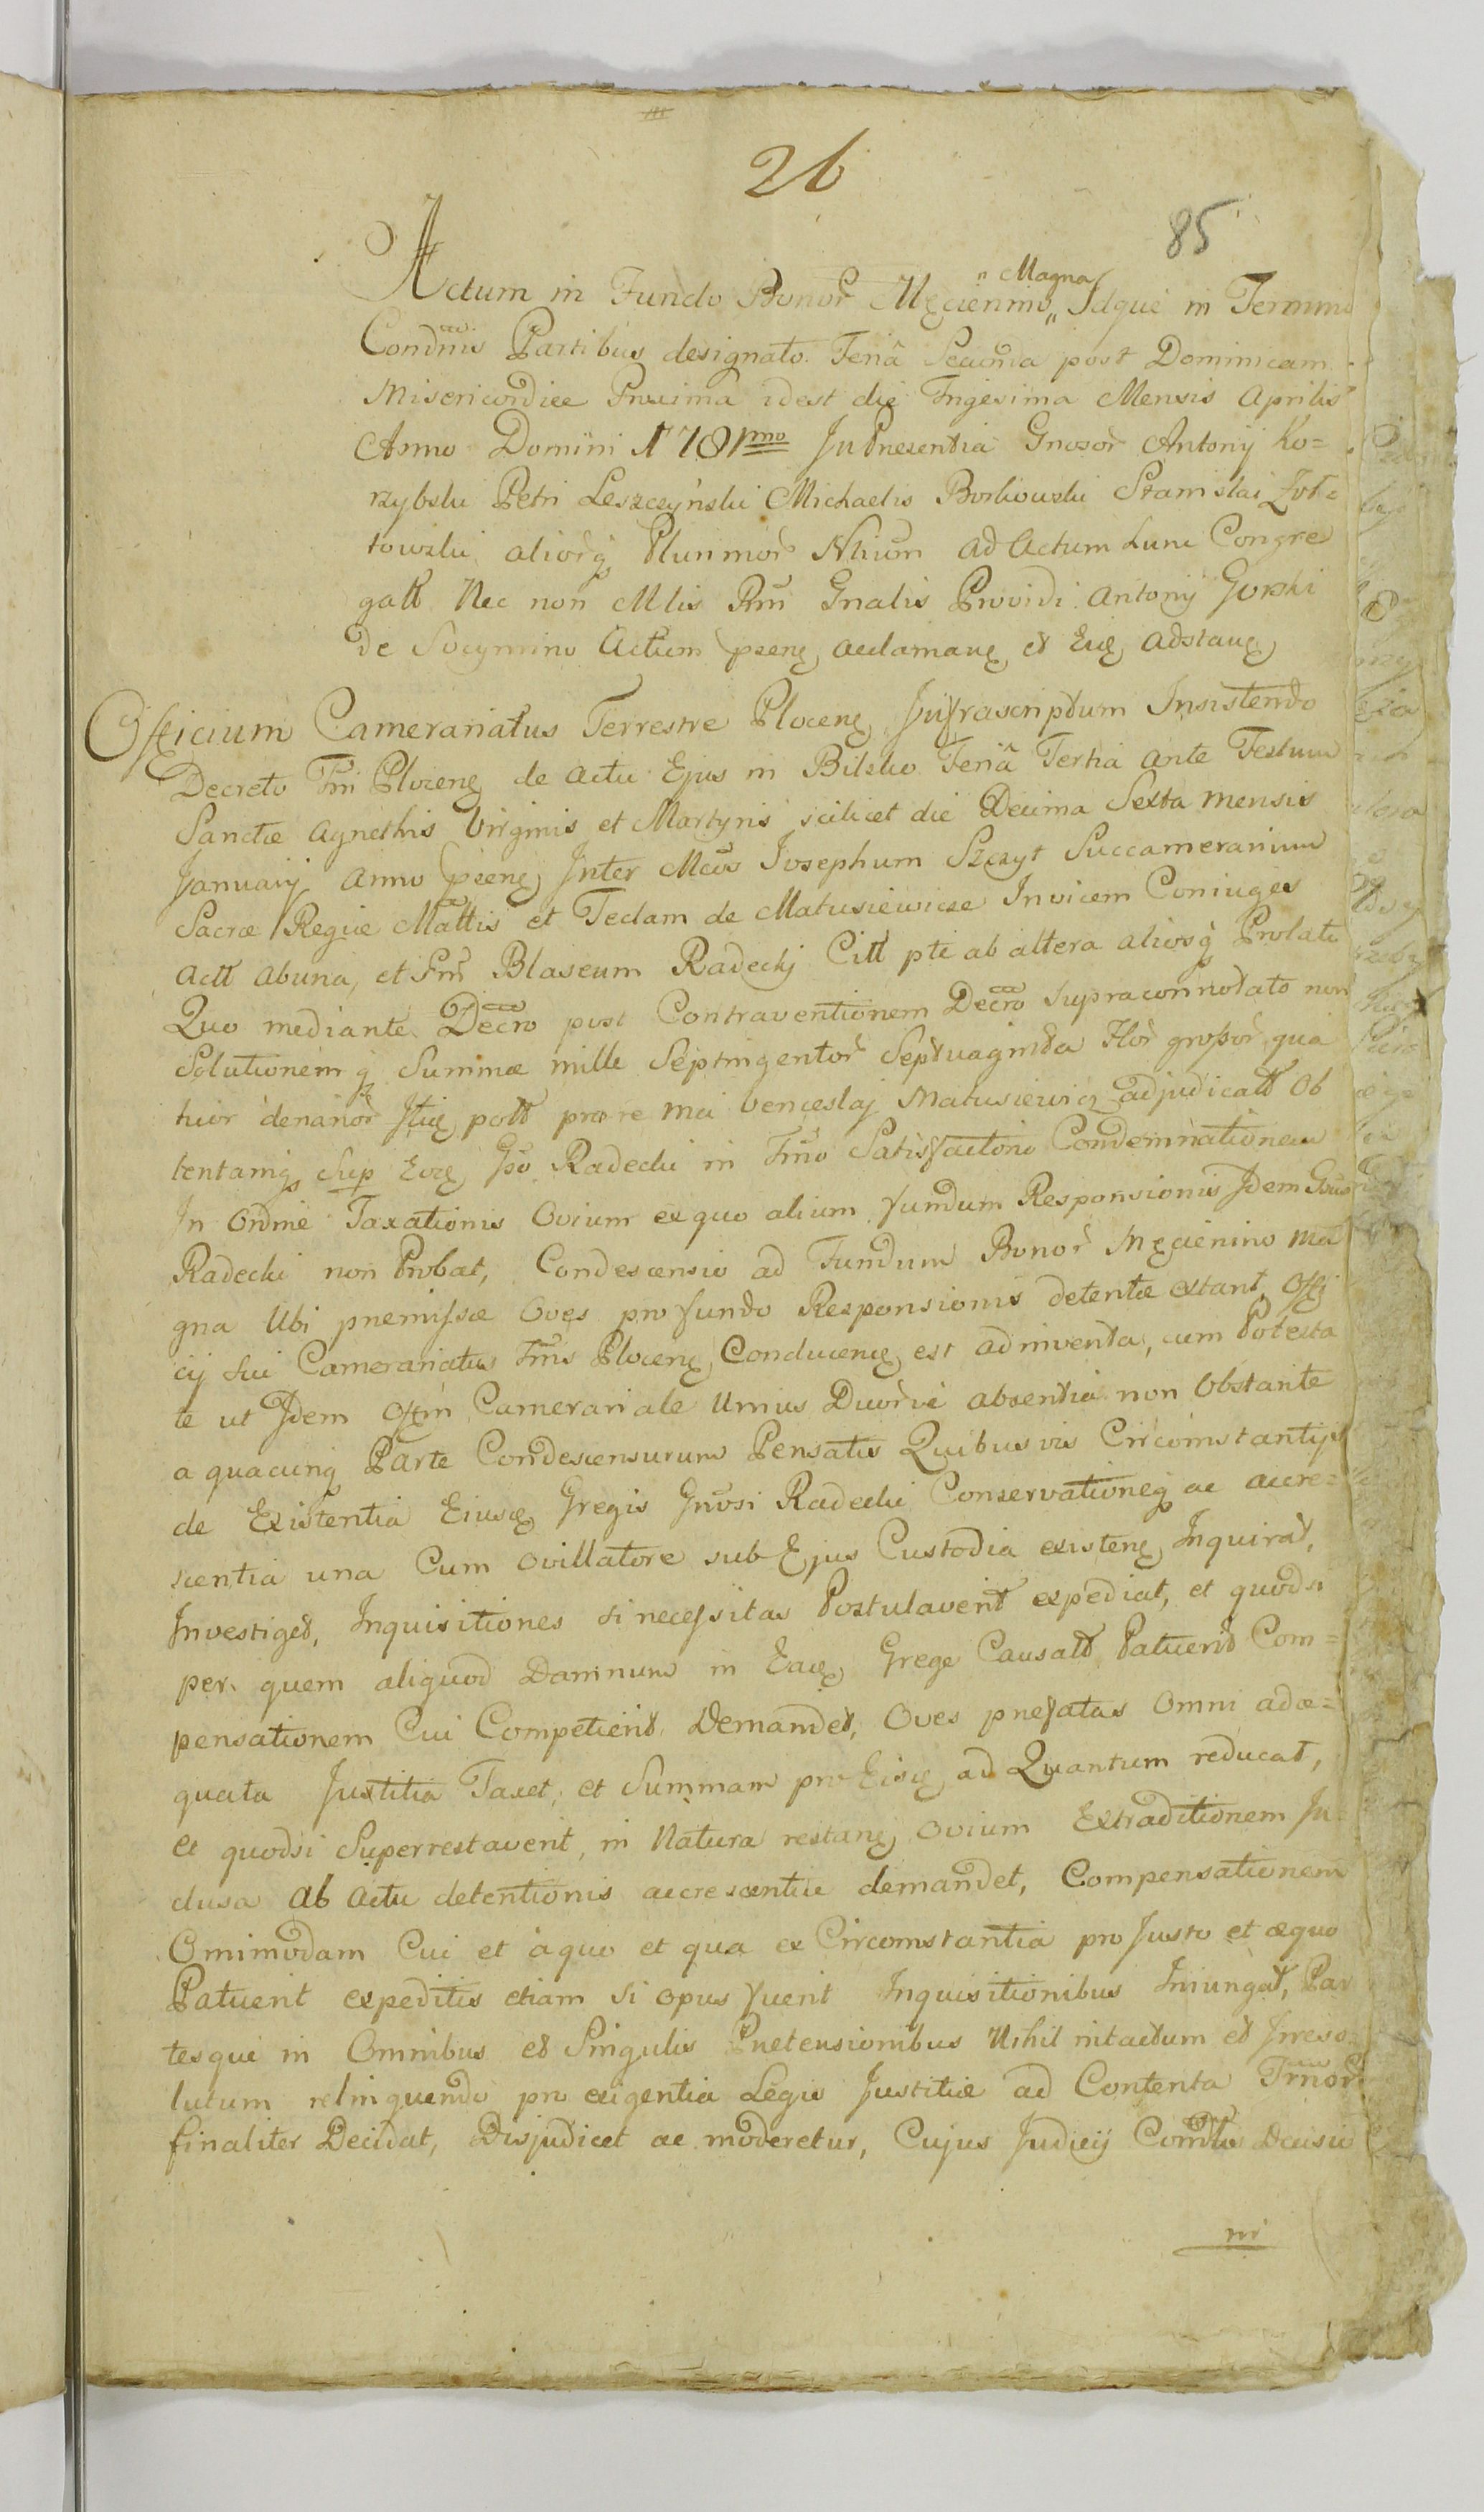 26
85
Actum in Fundo Bonor̃ Męcienino „Magna„ Idque in Termino
Condnis Partibus designato Feriâ Secunda post Dominicam
Misericordiæ Proxima idest die Trigesima Mensis Aprilis
Anno Domini 1781mo In Præsentia Gnosor̃ Antonij Ko=
rzybski Petri Leszczyński Michaelis Borkowski Stanislai Zół=
towski aliorq̨ Plurimor̃ Nlium ad Actum hunc Congre
gatt Nec non Mlis Rni Gnalis Providi Antonij Gorski
de Socymino Actum pręnę acclamanę et Eię adstanę
Officium Camerariatus Terrestre Plocenę Infrascriptum Insistendo
Decreto Tri Plocenę de actu Ejus in Bilsko Feriâ Tertia ante Festum
Sanctæ Agnethis Virginis et Martyris scilicet die Decima Sexta mensis
Januarij Anno pręnę Inter Mcos Josephum Szczyt Succamerarium
Sacræ Regiæ Mattis et Teclam de Matusiewicze Invicem Coniuges
Actt abuna, et Gm̃ Blaseum Radecki Citt pte ab altera aliosq̨ Prolato
Quo mediante Decro post Contraventionem Decro supraconnotato non
Solutionemq̨ Summæ mille Septingentor̃ Septuaginta Flor̃ grossor̃ qua
tuor denarior̃ patt præ re Mci Venceslaj Matusiewicz adjudicatt Ob
tentamq̨ Sup Eoę Gso Radecki in Trno Satisfactorio Condemnationem
In Ordine Taxationis Ovium exquo alium fundum Responsionis Idem Gsus
Radecki non Probat, Condescensio ad Fundum Bonor̃ Męcienino Ma
gna Ubi præmissæ Oves pro fundo Responsionis detentæ extant, Offi
cij sui Camerariatus Trris Plocenę Conducenę est adinventa, cum Potesta
te ut Idem Offm Camerariale Unius Duorve absentia non Obstante
a quacunq̨ Parte Condescensurum Pensatis Quibusvis Circomstantijs
de Existentia Eiusę Gregis Gnosi Radecki Conservationeq̨ ac accre=
scentia una Cum ovillatore sub Ejus Custodia existenę Inquirat,
Investiget, Inquisitiones si necessitas Postulaverit expediat, et quodsi
per quem aliquod Damnum in Eaę Grege Causatt Patuerit Com=
pensationem Cui Competierit Demandet, Oves præfatas Omni adæ=
quata Justitia Taxet, et Summam pro Eisę ad Quantum reducat,
et quodsi Superrestaverit, in Natura restanę Ovium Extraditionem In
clusa ab Actu detentionis accrescentia demandet, Compensationem
Omimodam Cui et à quo et qua ex Circomstantia pro Justo et æquo
Patuerit expeditis etiam si opus fuerit Inquisitionibus Iniungat, Par
tesque in Omnibus et Singulis Prætensionibus Nihil intactum et Irreso
lutum relinquendo pro exigentia Legis Justitiæ ad Contenta Trnor̃
finaliter Decidat, Disjudicet ac moderetur, Cujus Judicij Decisio
ni